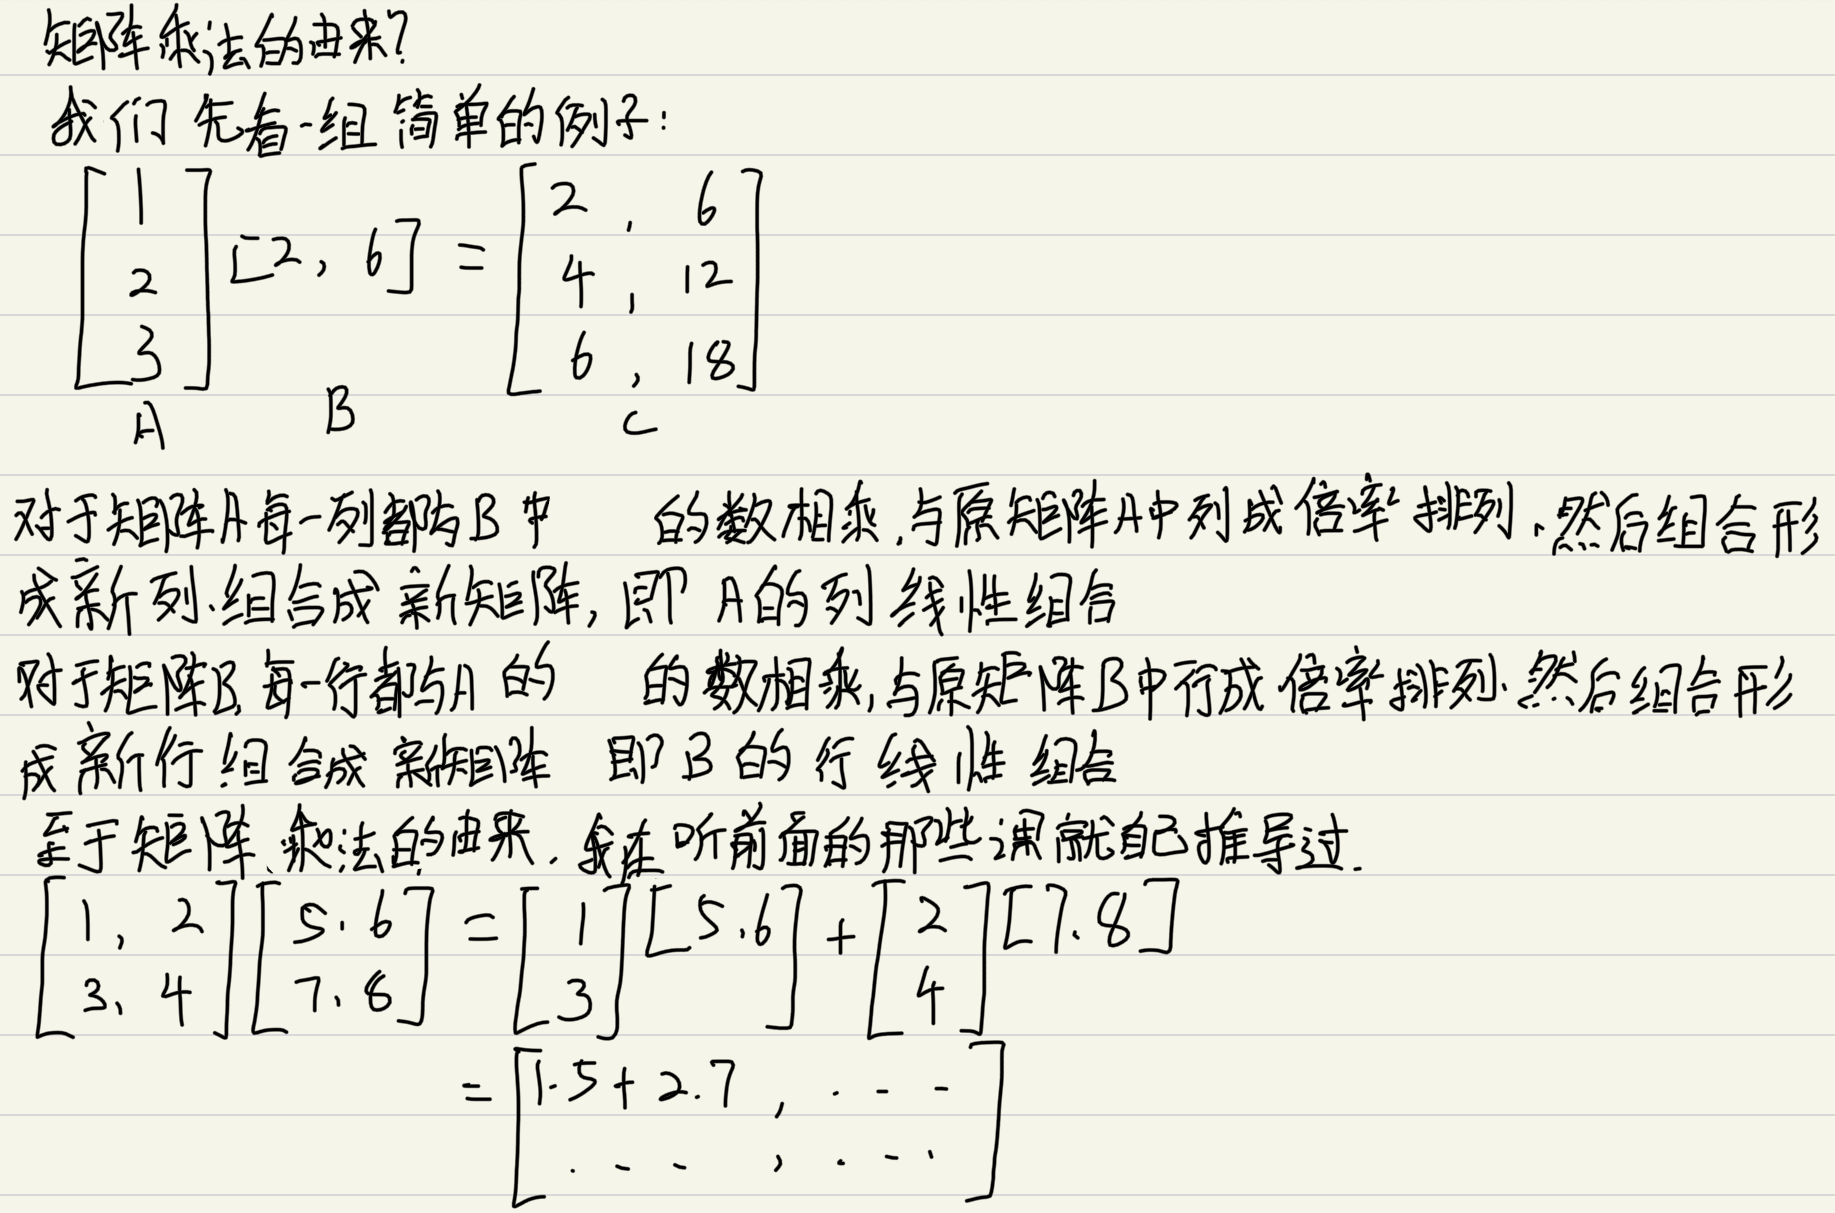 矩阵乘法的由来?
我们先看一组简单的例子:
[1 2 3] [2, 6] = [2, 6 4, 12 6, 18]
A B C
对于矩阵A每一列都与B中 的数相乘,与原矩阵A中列成倍率排列,然后组合形
成新列,组合成新矩阵,即A的列线性组合
对于矩阵B,每一行都与A的 的数相乘,与原矩阵B中行成倍率排列,然后组合形
成新行组合成新矩阵 即B的行线性组合
至于矩阵乘法的由来,我在听前面的那些课就自己推导过.
[1, 2 3, 4] [5, 6 7, 8] = [1 3] [5, 6] + [2 4] [7, 8]
= [1·5+2·7, ··· ···, ···]